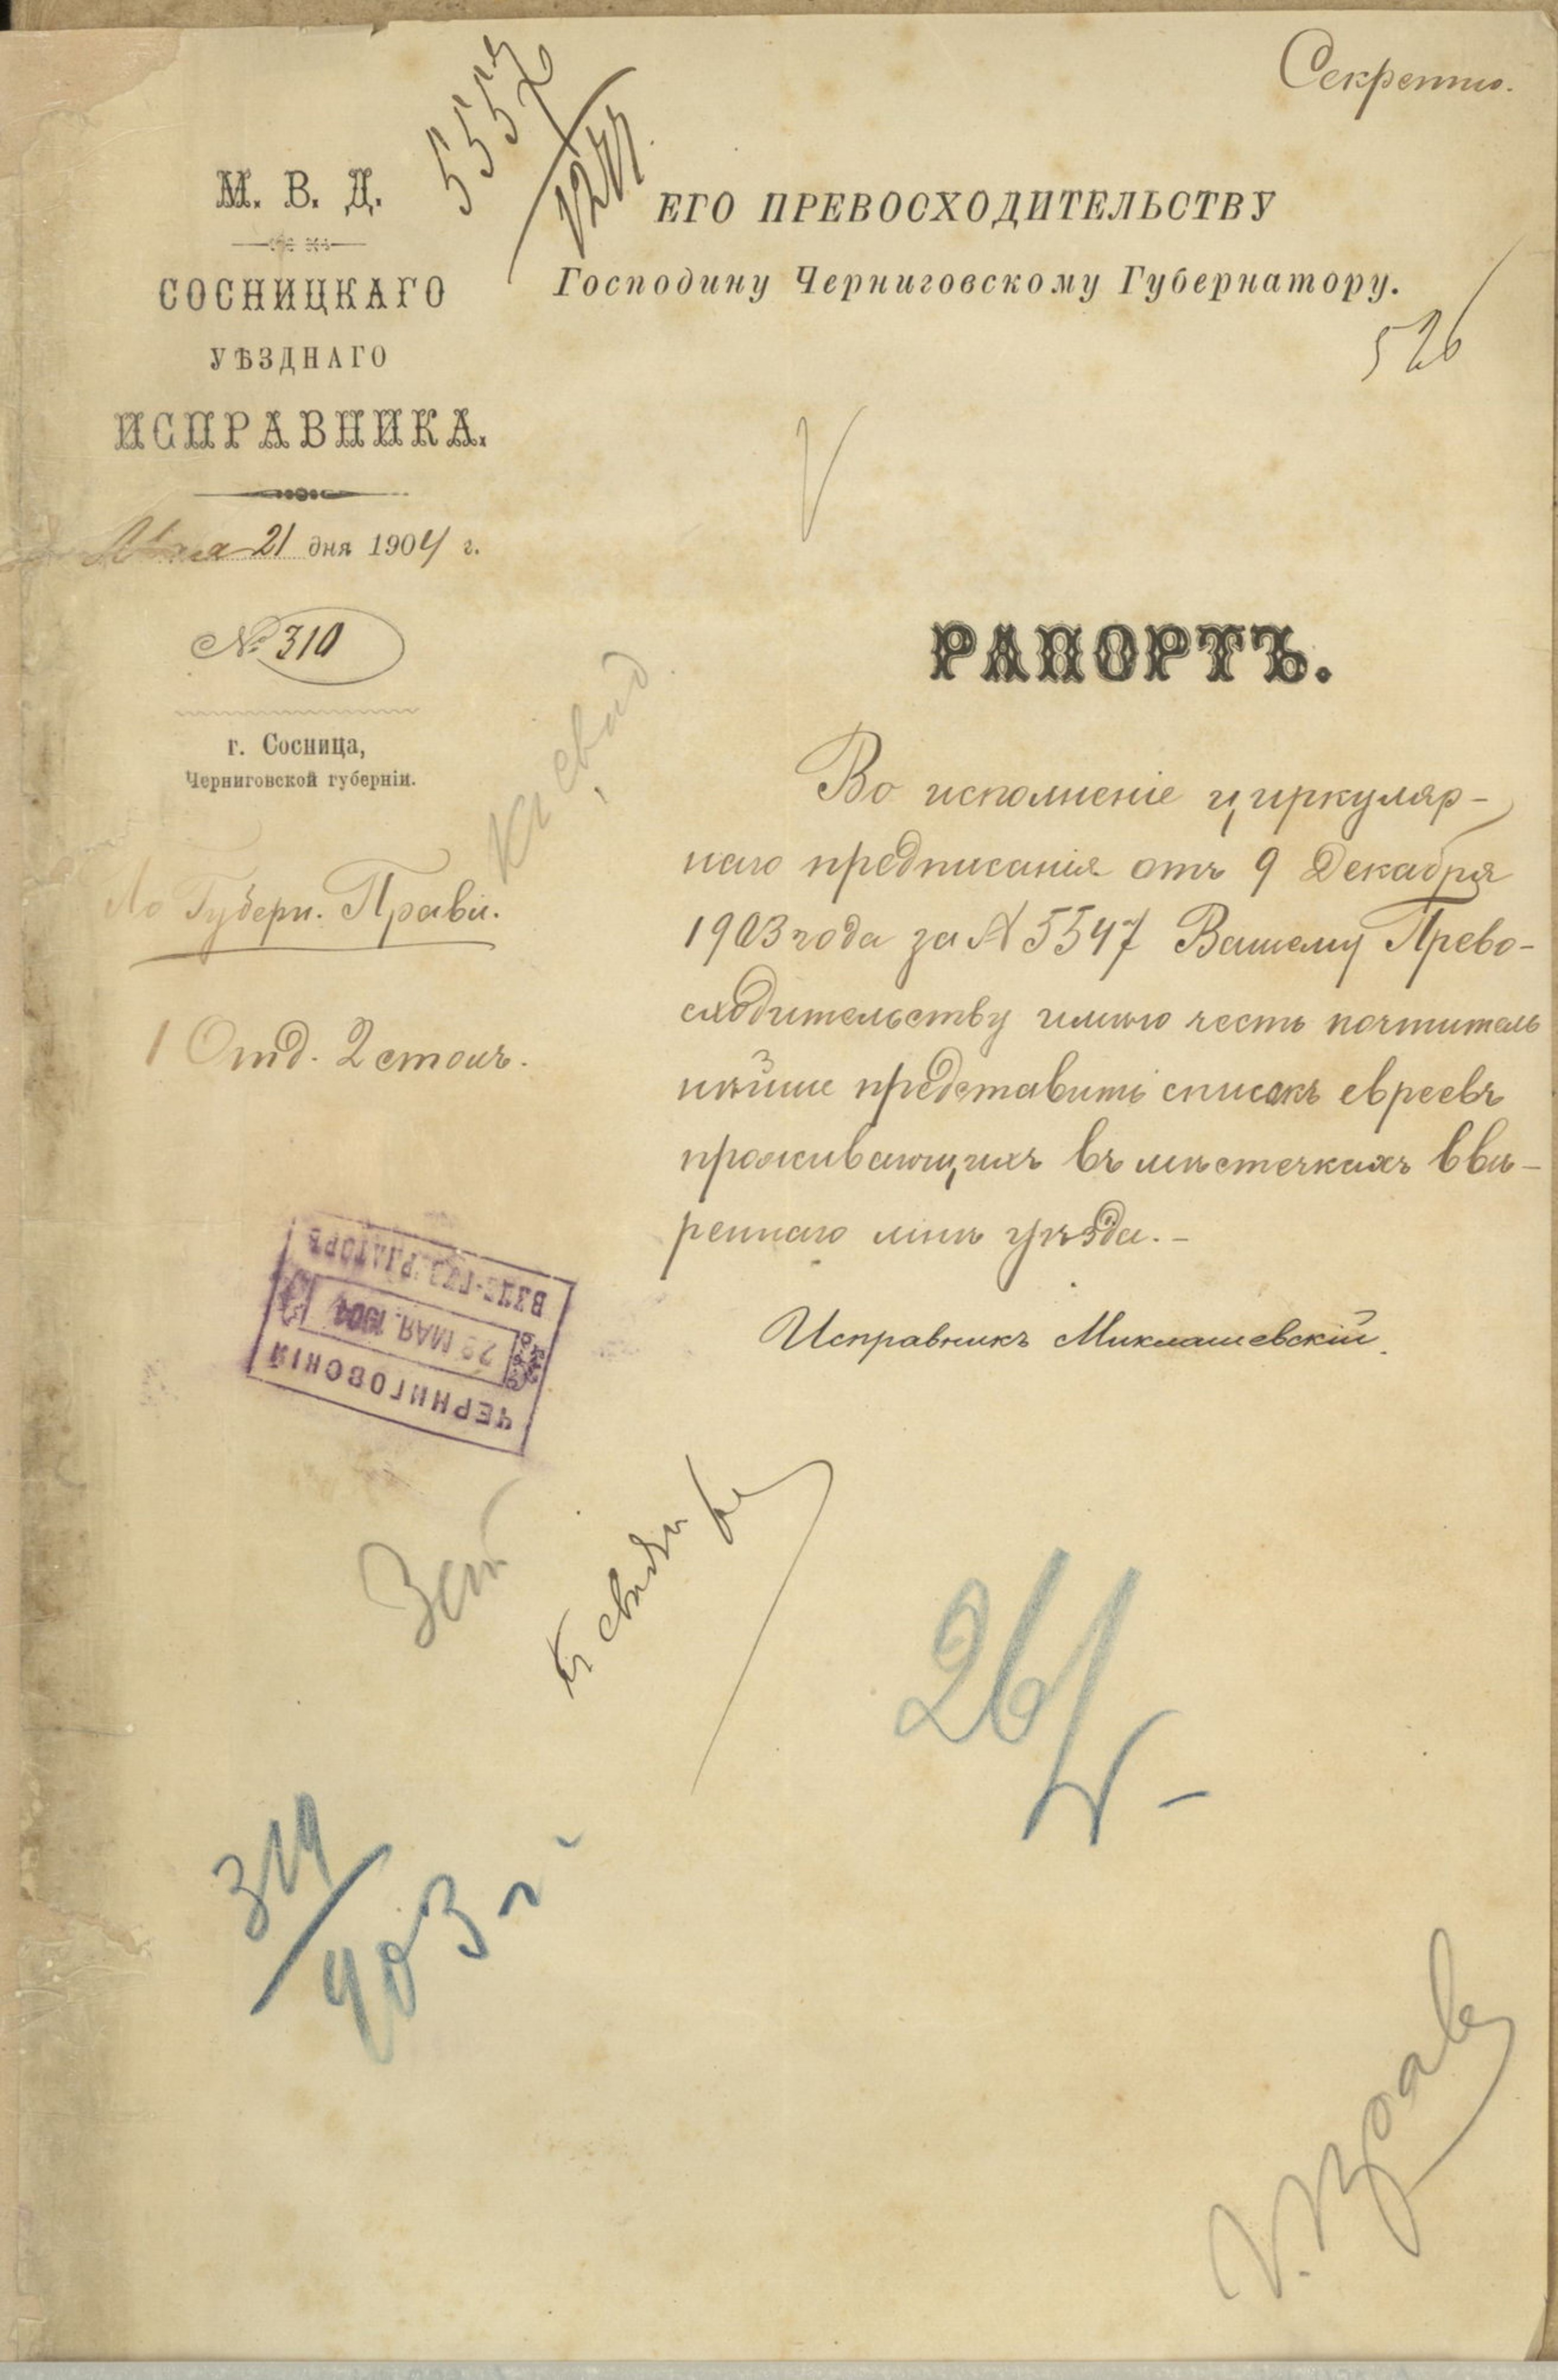 Секретно.
М. В. Д.
СОСНИЦКАГО
УѢЗДНАГО
ИСПРАВНИКА.
Мая 21 дня 1904 г.
№ 310
г. Сосница,
Черниговской губерніи.
По Губерн. Правл.
1 Отд. 2 столъ.
5557
ЕГО ПРЕВОСХОДИТЕЛЬСТВУ
Господину Черниговскому Губернатору.
526
РАПОРТЪ.
Во исполненіе циркуляр-
наго предписанія отъ 9 Декабря
1903 года за № 5547 Вашему Прево-
сходительству имѣю честь почтитель
нѣйше представить списокъ евреевъ
проживающихъ въ мѣстечкахъ ввѣ-
реннаго мнѣ уѣзда.-
Исправникъ Миклашевскій.
ЧЕРНИГОВСКІЙ
МАЯ 1904
ВИЦЕ-ГУБЕРНАТОРЪ
26/V-
319/903 г